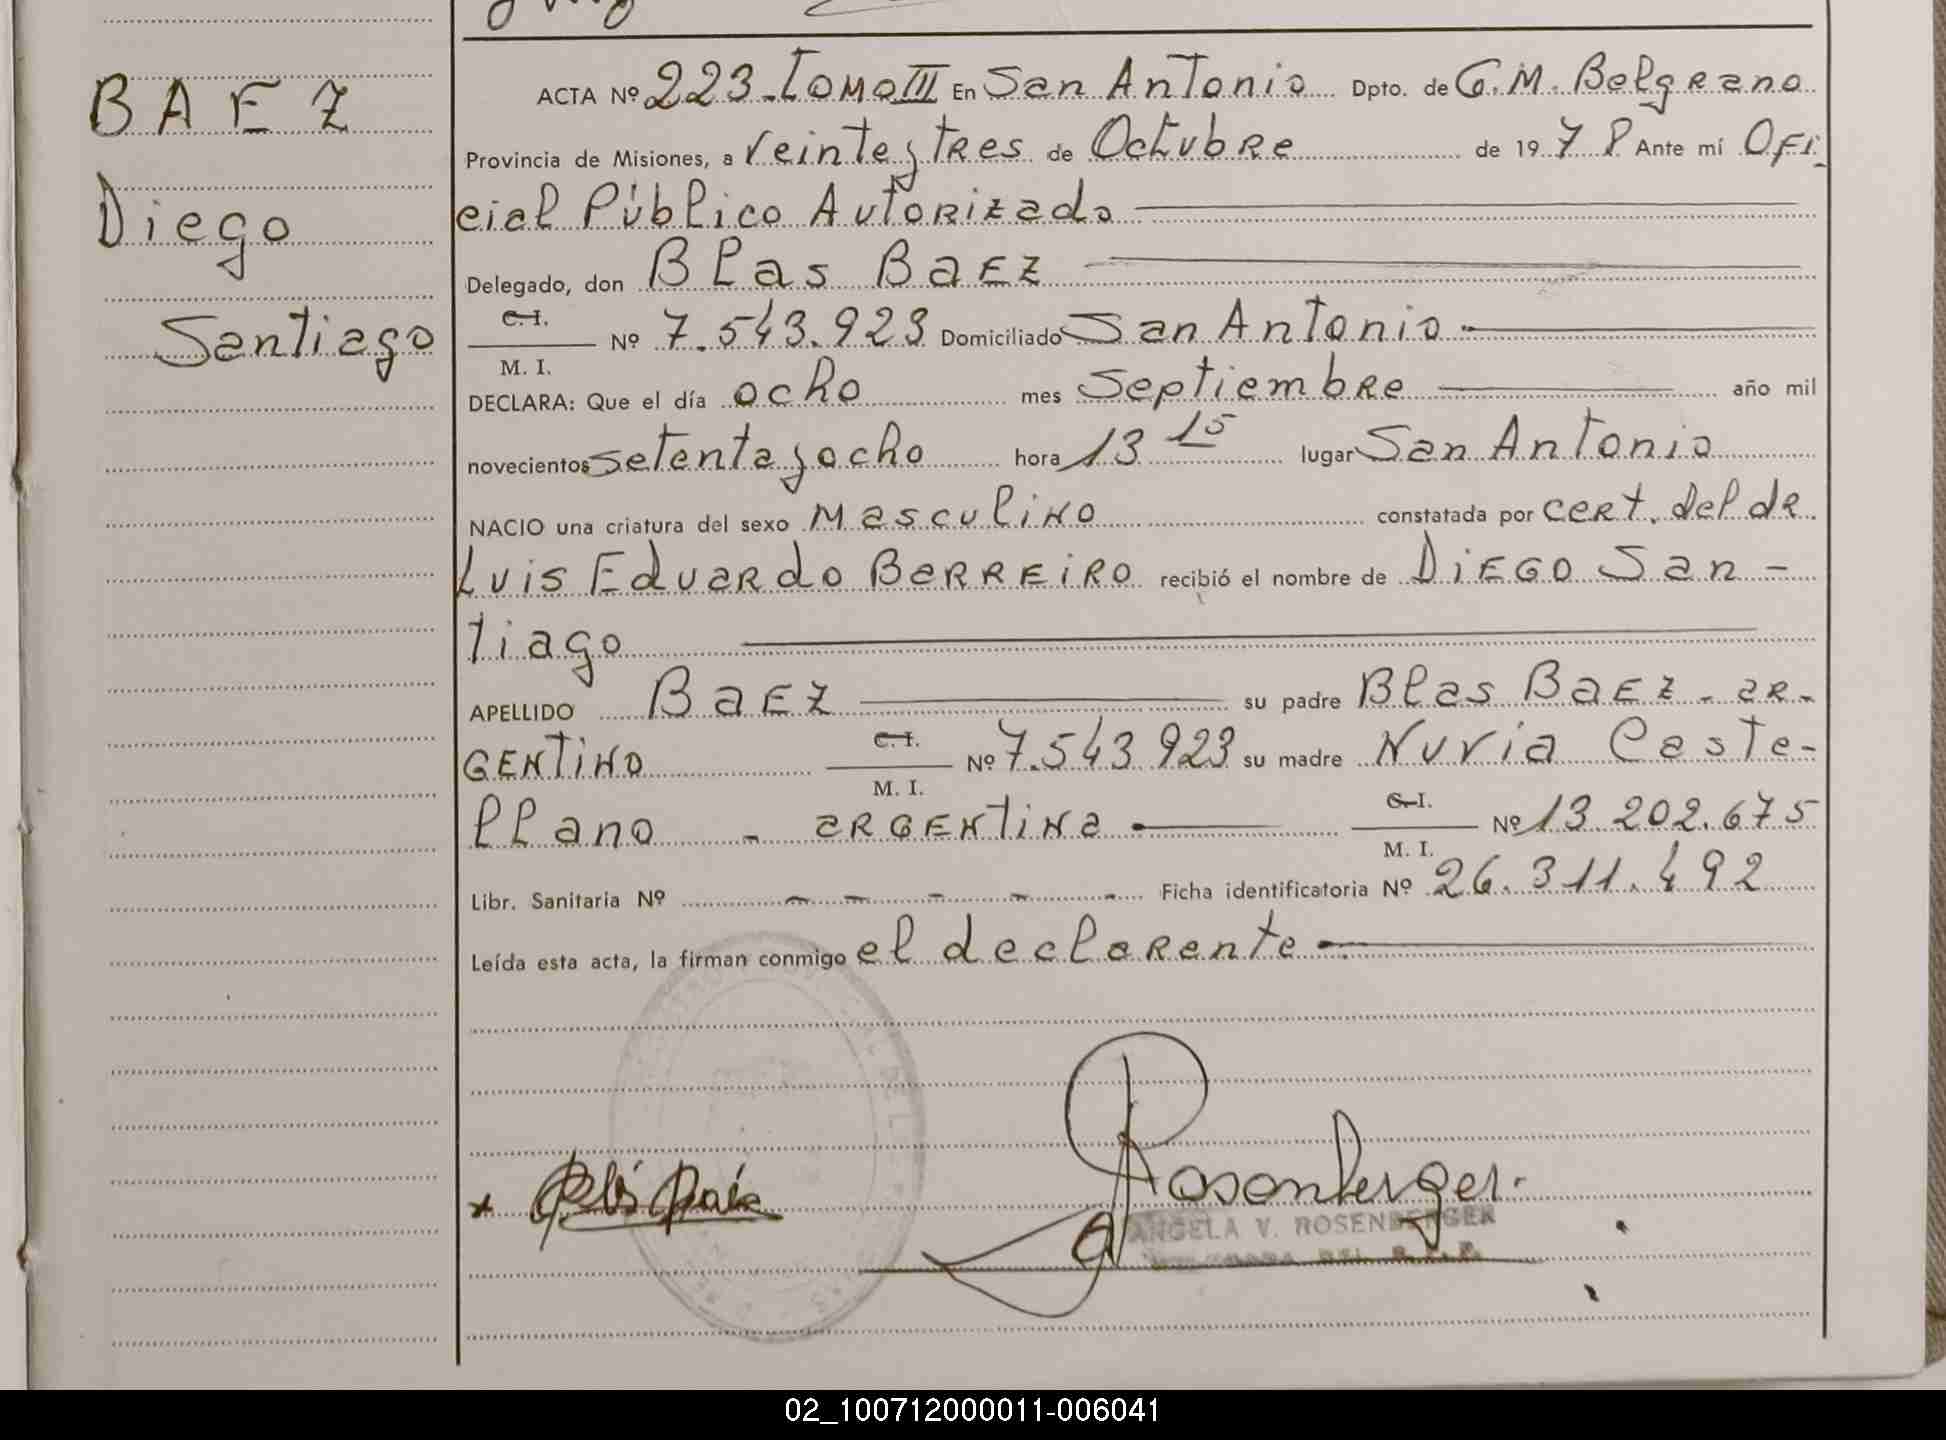 BAEZ
Diego
Santiago
ACTA Nº 223-TOMO III En San Antonio Dpto. de G.M. Belgrano
Provincia de Misiones, a veinte y tres de Octubre de 1978 Ante mí Ofi
cial Público Autorizado
Delegado, don Blas Baez
C. I.
Nº 7.543.923 Domiciliado San Antonio
M. I.
DECLARA: Que el día ocho mes Septiembre año mil
novecientos setenta y ocho hora 13 15 lugar San Antonio
NACIO una criatura del sexo Masculino constatada por cert. del dr.
Luis Eduardo Berreiro recibió el nombre de Diego San-
tiago
APELLIDO Baez su padre Blas Baez - ar-
gentino C. I. Nº 7.543.923 su madre Nuvia Caste-
M. I.
llano - argentina C. I. Nº 13.202.675
M. I.
Libr. Sanitaria Nº - - - - - Ficha identificatoria Nº 26.311.492
Leída esta acta, la firman conmigo el declarante
Rosenberger
ANGELA V. ROSENBERGER
02_100712000011-006041